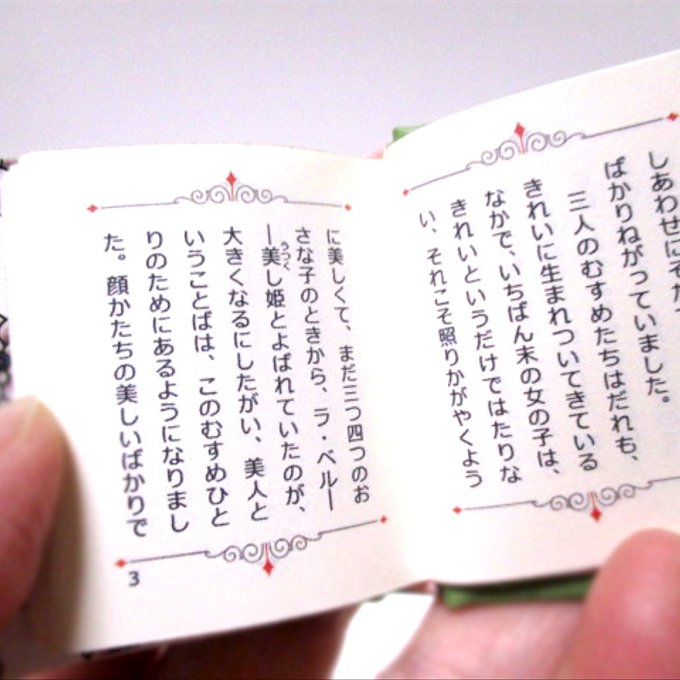 しあわせにそだ
ばかりねがっていました。
三人のむすめたちはだれも、
きれいに生まれついてきている
なかで、いちばん末の女の子は、
きれいというだけではたりな
い、それこそ照りかがやくよう
に美しくて、まだ三つ四つのお
さな子のときから、ラ・ベル―
―美し姫とよばれていたのが、
うつく
大きくなるにしたがい、美人と
いうことばは、このむすめひと
りのためにあるようになりまし
た。顔かたちの美しいばかりで
3